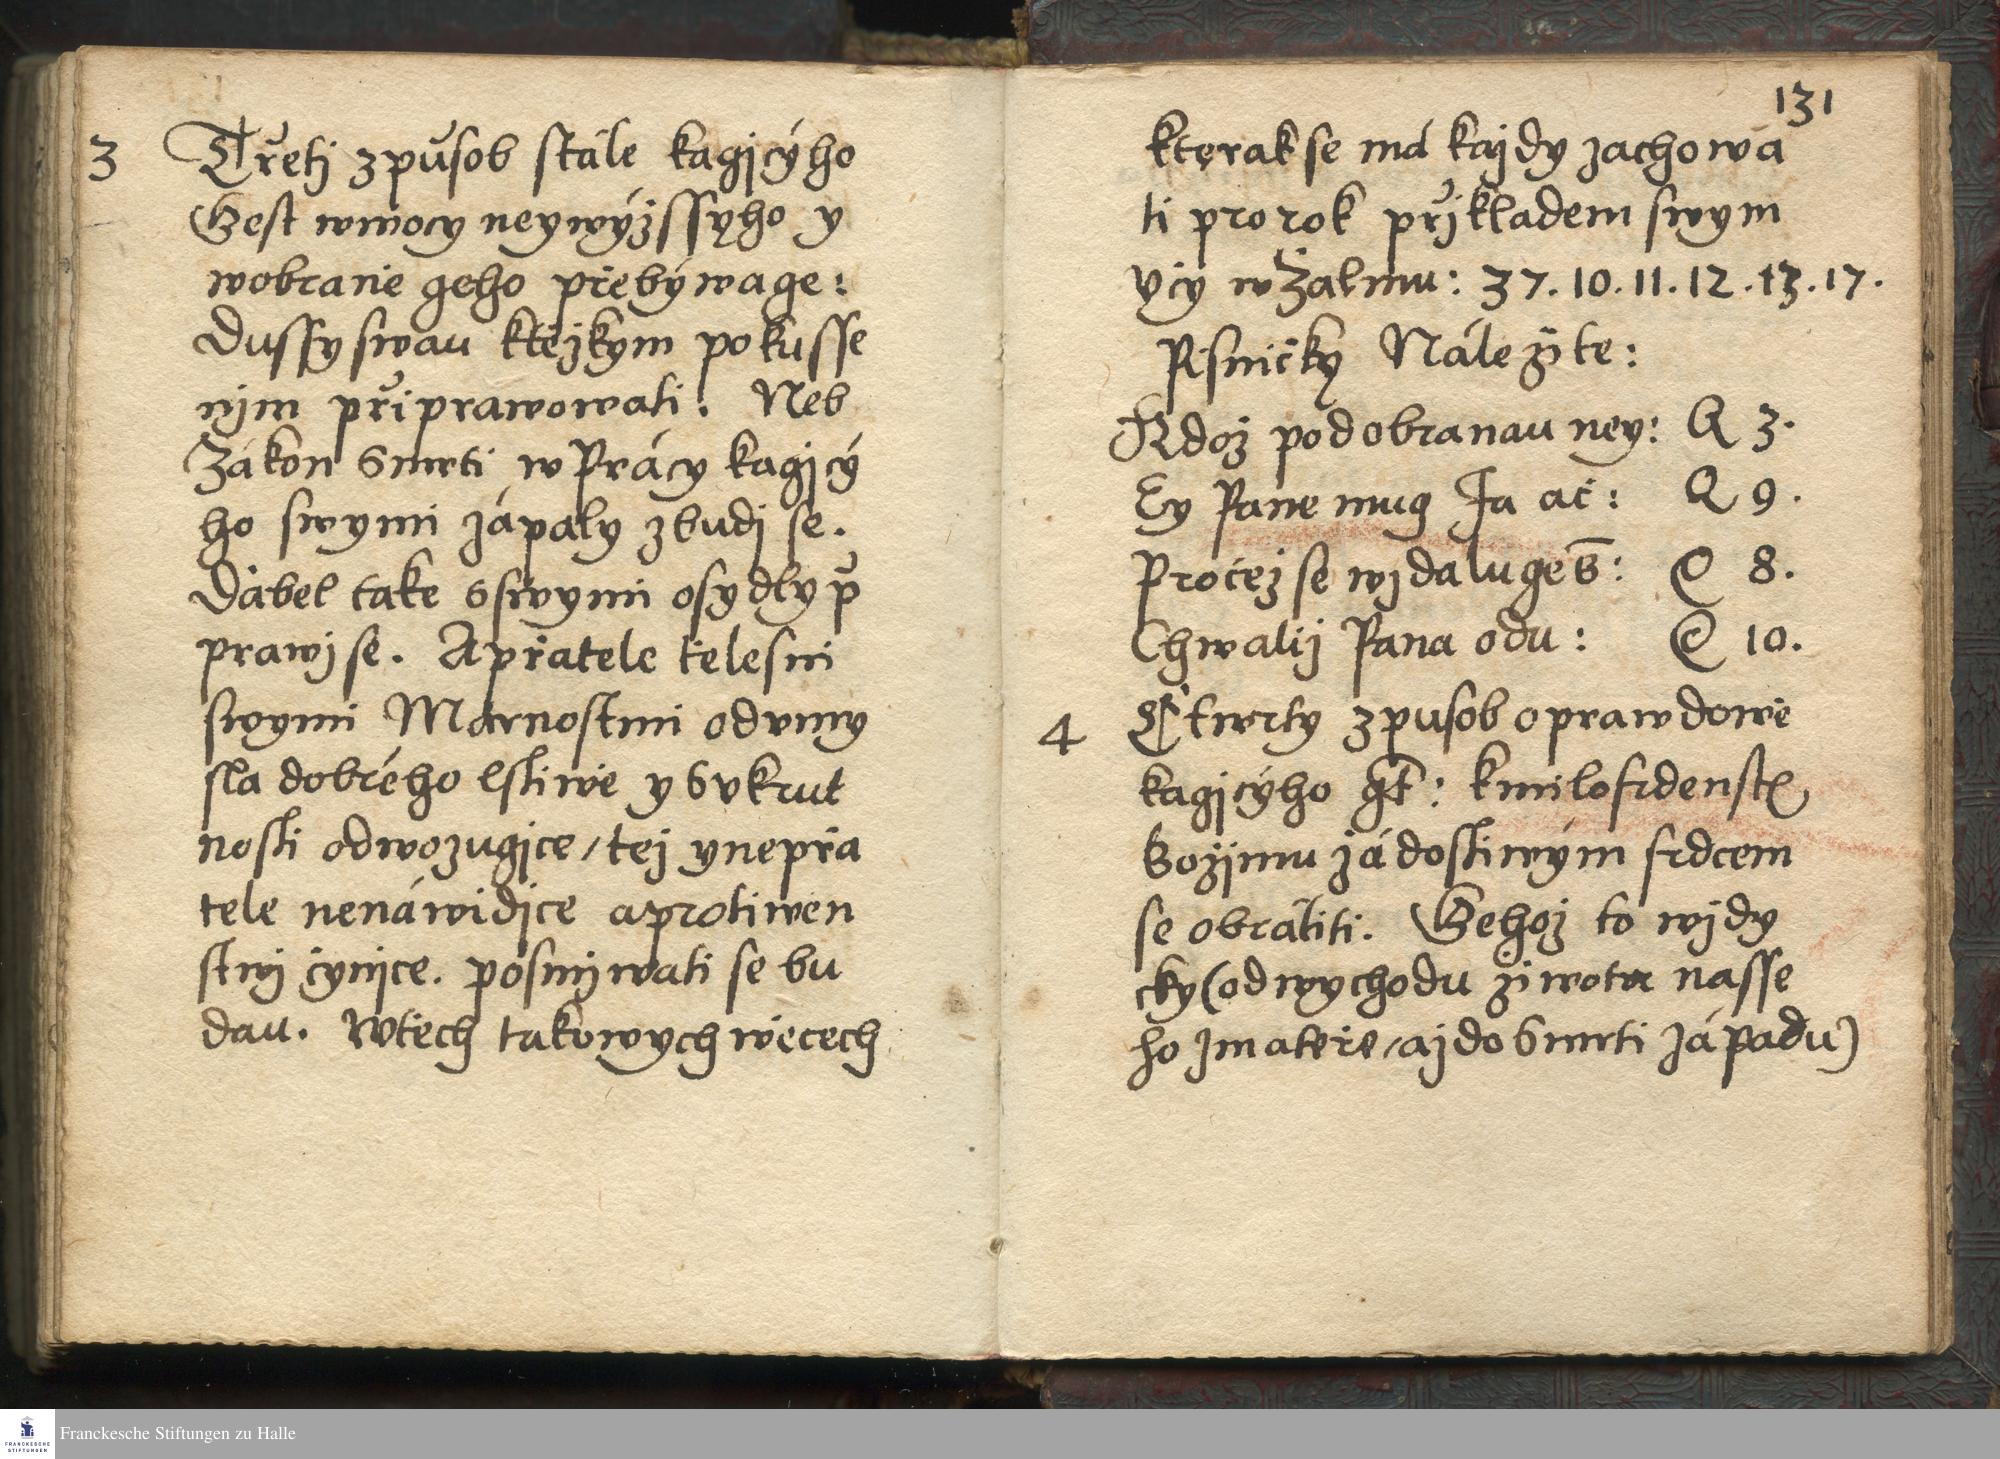 3 Třetj zpuͦsob stále kagjcýho
Gest wmocy neywýžssyho y
wobraně geho přebýwage:
Dussy swau ktěžkym pokusse
njm připrawowati: Neb
Zákon Smrti w Prácy kagjcý
ho swymi zápaly zbudj se.
Dábel take sswymi osydly p̃
prawj se. A přatele tělesni
swymi Marnostmi od vmy
sla dobrého lstiwě y Svkrut
nosti odwozugjce / tež y nepřa
tele nenáwidjce a protiwen
stwj čynjce. posmjwati se bu
dau. Wtěch takowych wěcech
131
kterak se má každy zachowa
ti prorok přjkladem swym
včy w Žalmu: 37. 10. 11. 12. 13. 17.
Pisničky Náležite:
Kdož pod obranau ney: Q 3.
Ey Pane mug Ja ač: Q 9.
Pročež se wzdalugeš: C 8.
Chwalij Pana odu: C 10.
4 Čtwrty zpusob oprawdowě
kagjcýho gt̃: kmilosrdenst
Božjmu žádostiwým srdcem
se obrátiti. Gehož to wždy
cky (od wychodu žiwota nasse
ho zmateře / až do Smrti západu)
Franckesche Stiftungen zu Halle
FRANCKESCHE
STIFTUNGEN